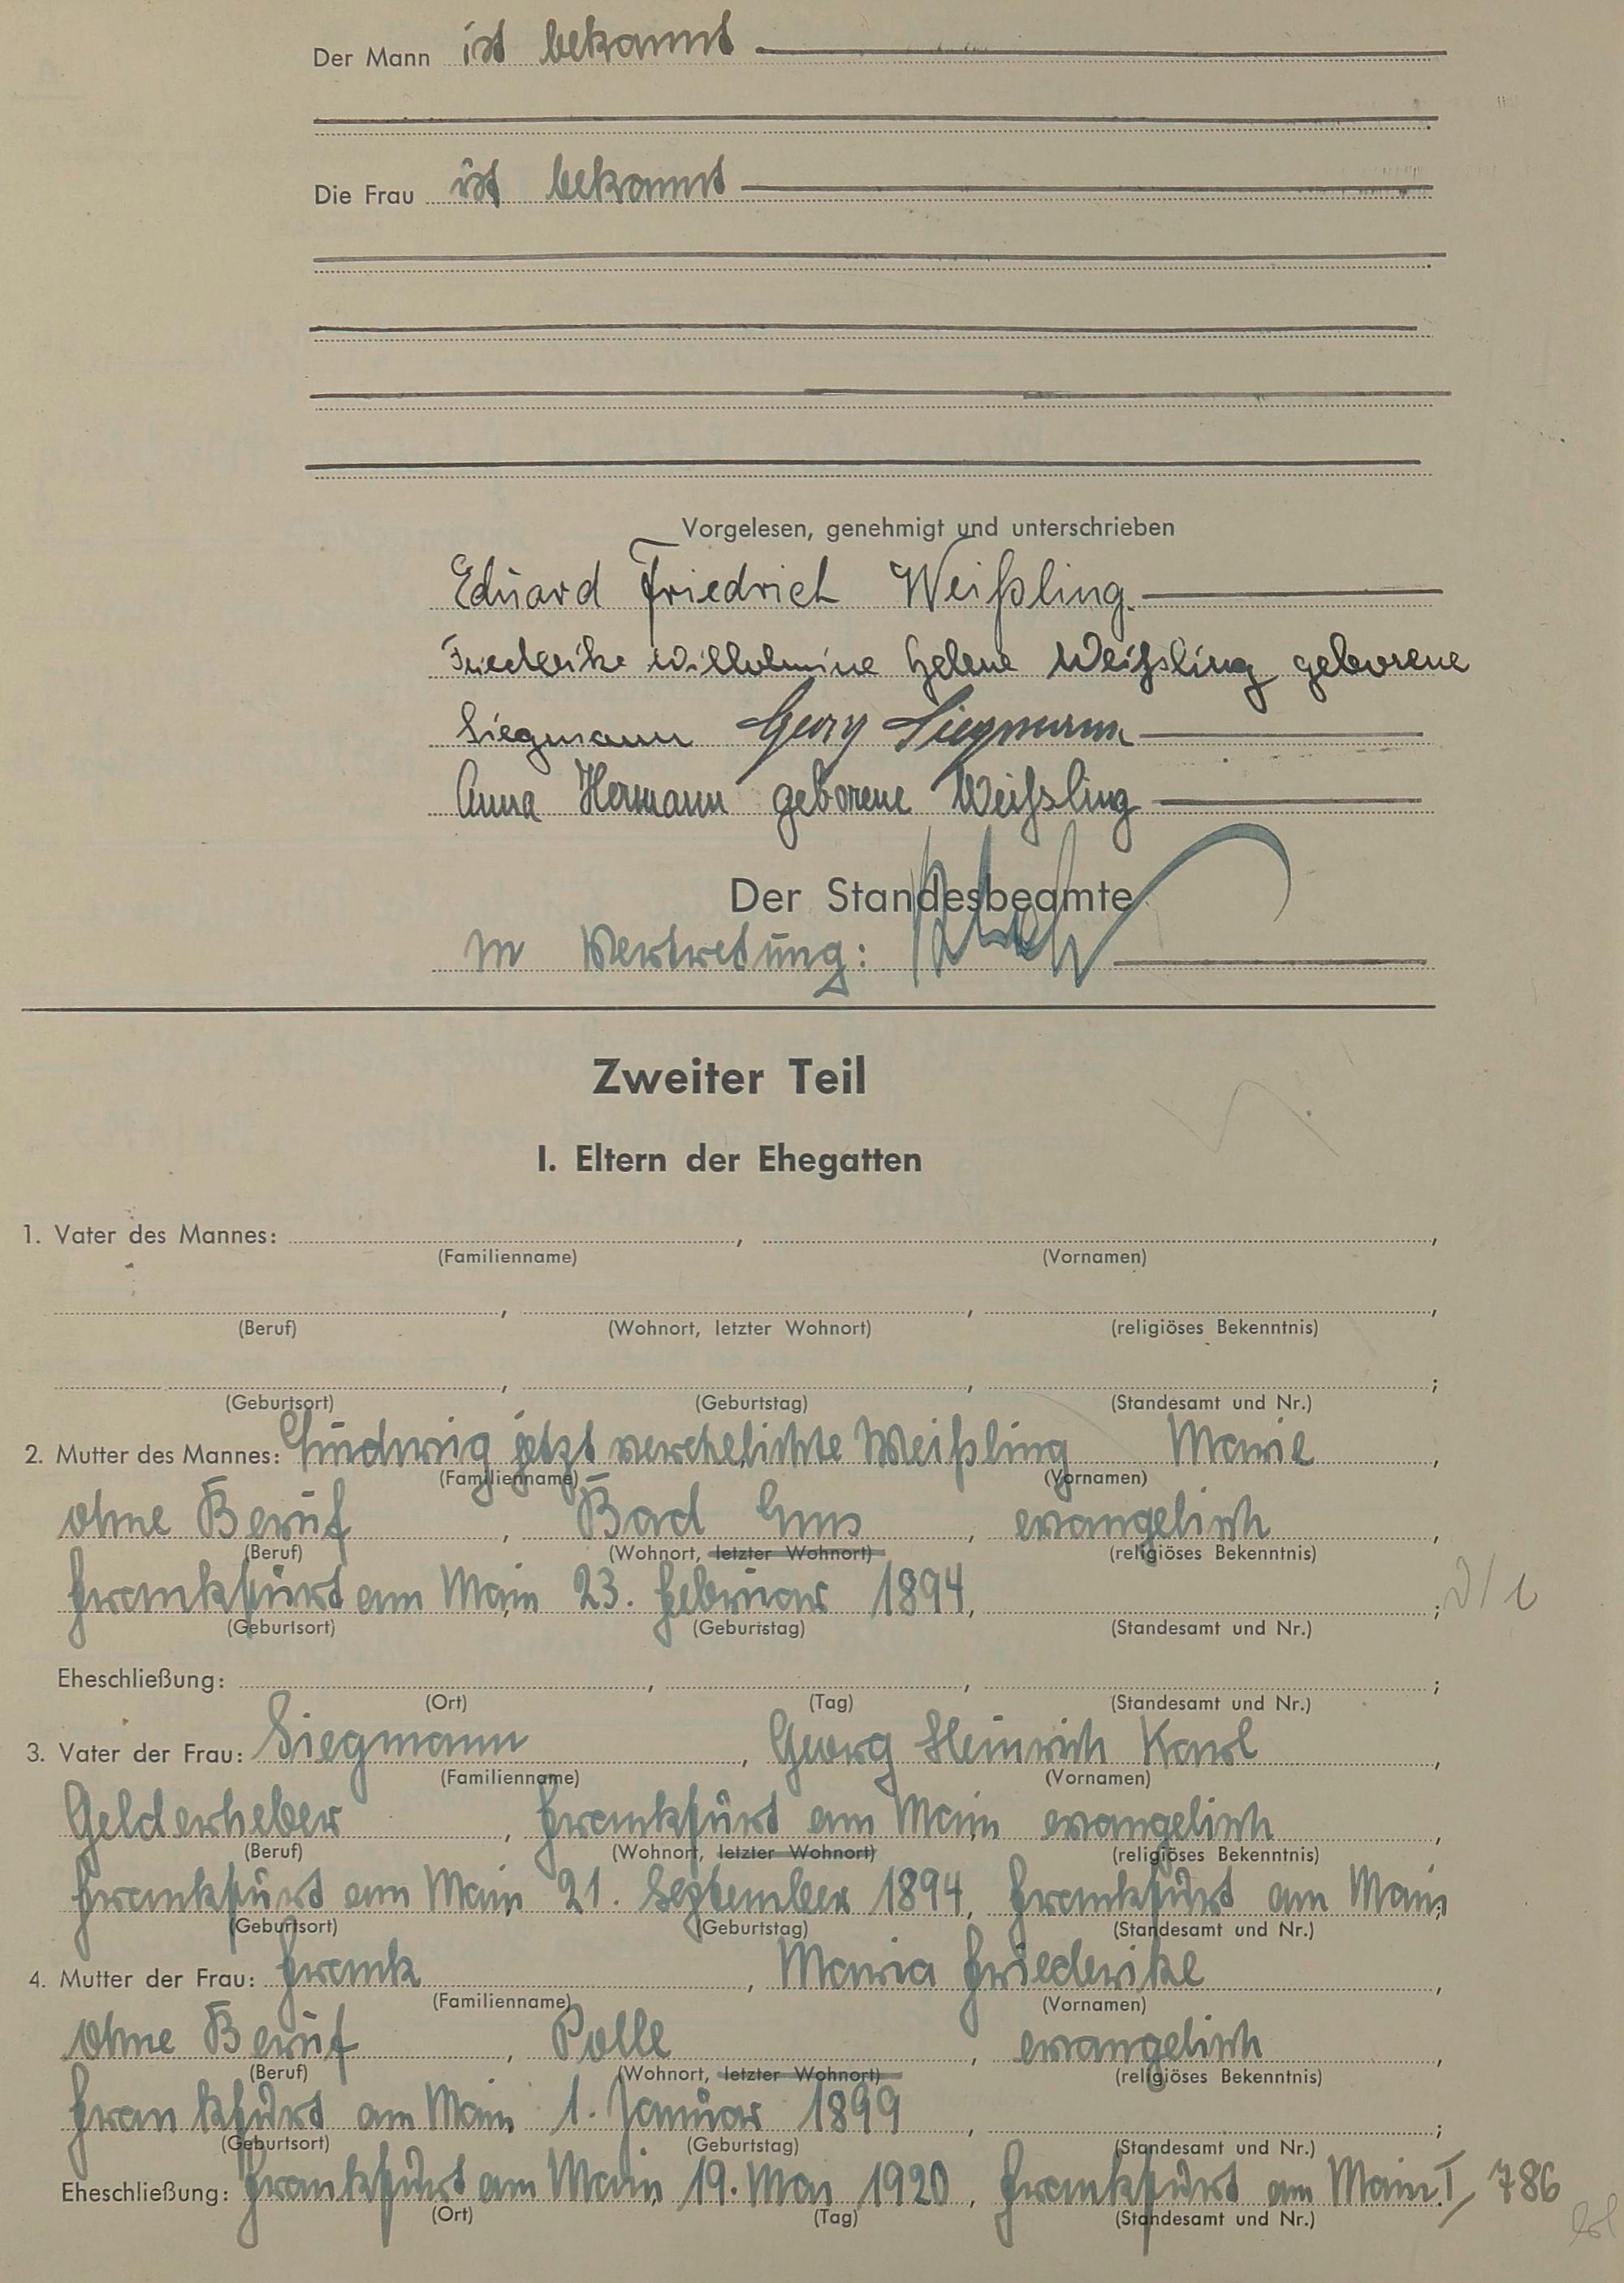 Der Mann ist bekannt
Die Frau ist bekannt
Vorgelesen, genehmigt und unterschrieben
Eduard Friedrich Weißling.
Friederike Wilhelmine Helene Weißling geborene
Siegmann Georg Siegmann
Anna Hermann geborene Weißling
Der Standesbeamte
In Vertretung:
Zweiter Teil
I. Eltern der Ehegatten
1. Vater des Mannes: , ,
(Familienname) (Vornamen)
, , ,
(Beruf) (Wohnort, letzter Wohnort) (religiöses Bekenntnis)
, , ;
(Geburtsort) (Geburtstag) (Standesamt und Nr.)
2. Mutter des Mannes: Ludwig jetzt verehelichte Weißling Marie ,
(Familienname) (Vornamen)
ohne Beruf , Bad Ems , evangelisch ,
(Beruf) (Wohnort, letzter Wohnort) (religiöses Bekenntnis)
Frankfurt am Main, 23. Februar 1894, ;
(Geburtsort) (Geburtstag) (Standesamt und Nr.)
Eheschließung: , , ;
(Ort) (Tag) (Standesamt und Nr.)
3. Vater der Frau: Siegmann , Georg Heinrich Karl ,
(Familienname) (Vornamen)
Gelderheber , Frankfurt am Main evangelisch ,
(Beruf) (Wohnort, letzter Wohnort) (religiöses Bekenntnis)
Frankfurt am Main, 21. September 1894, Frankfurt am Main;
(Geburtsort) (Geburtstag) (Standesamt und Nr.)
4. Mutter der Frau: Frank , Maria Friederike ,
(Familienname) (Vornamen)
ohne Beruf , Polle , evangelisch ,
(Beruf) (Wohnort, letzter Wohnort) (religiöses Bekenntnis)
Frankfurt am Main, 1. Januar 1899 , ;
(Geburtsort) (Geburtstag) (Standesamt und Nr.)
Eheschließung: Frankfurt am Main, 19. Mai 1920, Frankfurt am Main I, 786
(Ort) (Tag) (Standesamt und Nr.)